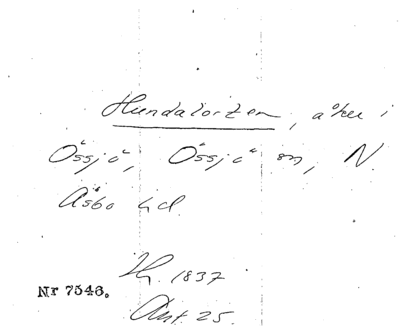 Hundalorten, åker i
Össjö, Össjö sn, N.
Åsbo hd.
1837
Ant. 25.
Nr 7546.